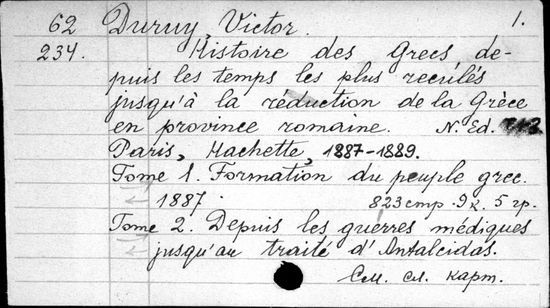 62 Duruy, Victor. 1.
234. Histoire des Grecs de-
puis les temps les plus reculés
jusqu'à la réduction de la Grèce
en province romaine. N. Ed.
Paris, Hachette, 1887-1889.
Tome 1. Formation du peuple grec.
1887. 823 стр. 9 к. 5 гр.
Tome 2. Depuis les guerres médiques
jusqu'au traité d'Antalcidas.
См. сл. карт.